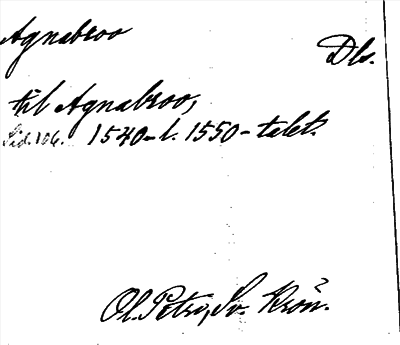 Agnabroo
Dls.
til Agnabroo,
Sid. 106. 1540- l. 1550-talet.
Ol. Petri, Sv. Krön.